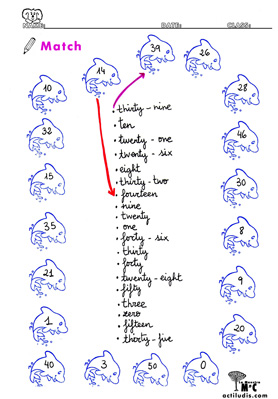 NAME: DATE: CLASS:
Match
39
26
14
10
28
thirty - nine
ten
32
46
twenty - one
twenty - six
eight
15
30
thirty - two
fourteen
nine
twenty
35
8
one
forty - six
thirty
forty
21
9
twenty - eight
fifty
three
1
20
zero
fifteen
thirty - five
40
3
50
0
actiludis.com